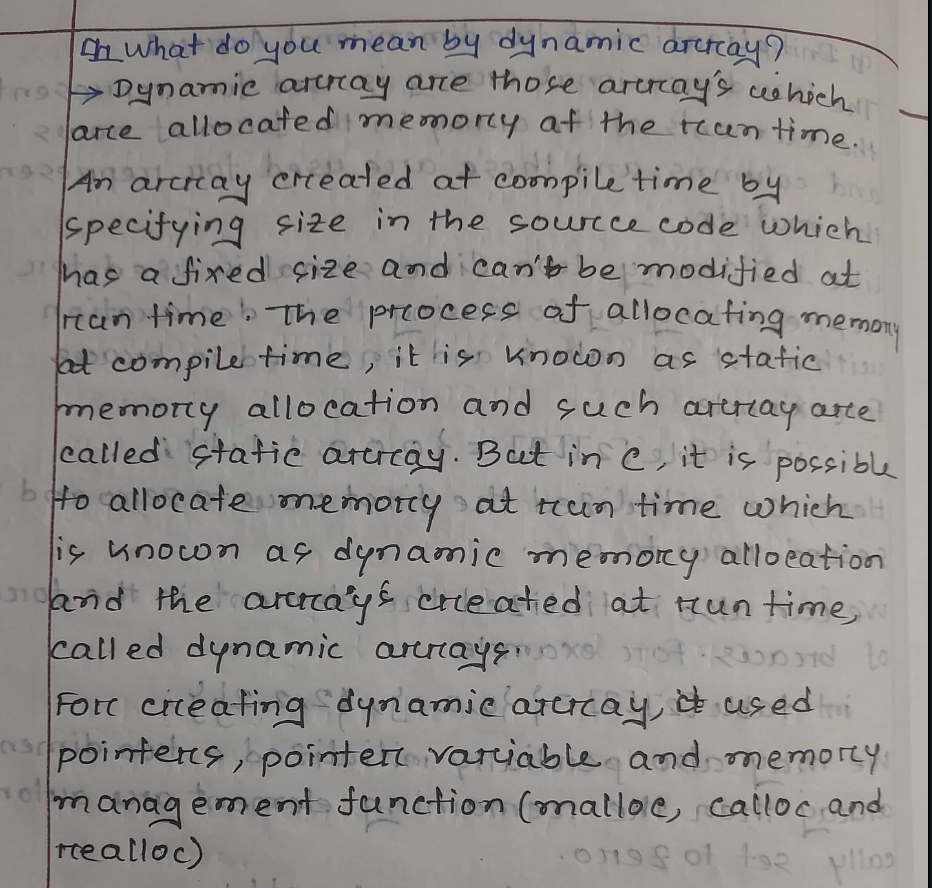 Q1 What do you mean by dynamic array?
→ Dynamic array are those array's which
are allocated memory at the run time.
An array created at compile time by
specifying size in the source code which
has a fixed size and can't be modified at
run time. The process of allocating memory
at compile time, it is known as static
memory allocation and such array are
called static array. But in C, it is possible
to allocate memory at run time which
is known as dynamic memory allocation
and the array's created at run time,
called dynamic arrays.
For creating dynamic array, it used
pointers, pointer variable and memory
management function (malloc, calloc and
realloc)